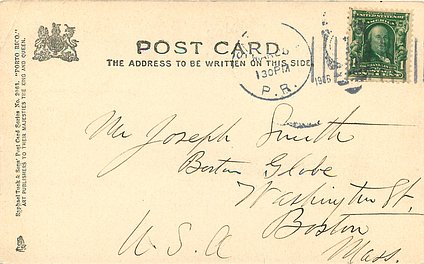 POST CARD.
THE ADDRESS TO BE WRITTEN ON THIS SIDE.
130 PM
P. R.
1906
Mr Joseph Smith
Boston Globe
Washington St.
Boston
Mass.
U.S.A
Raphael Tuck & Sons' Post Card Series No. 2461. "PORTO RICO."
ART PUBLISHERS TO THEIR MAJESTIES THE KING AND QUEEN.